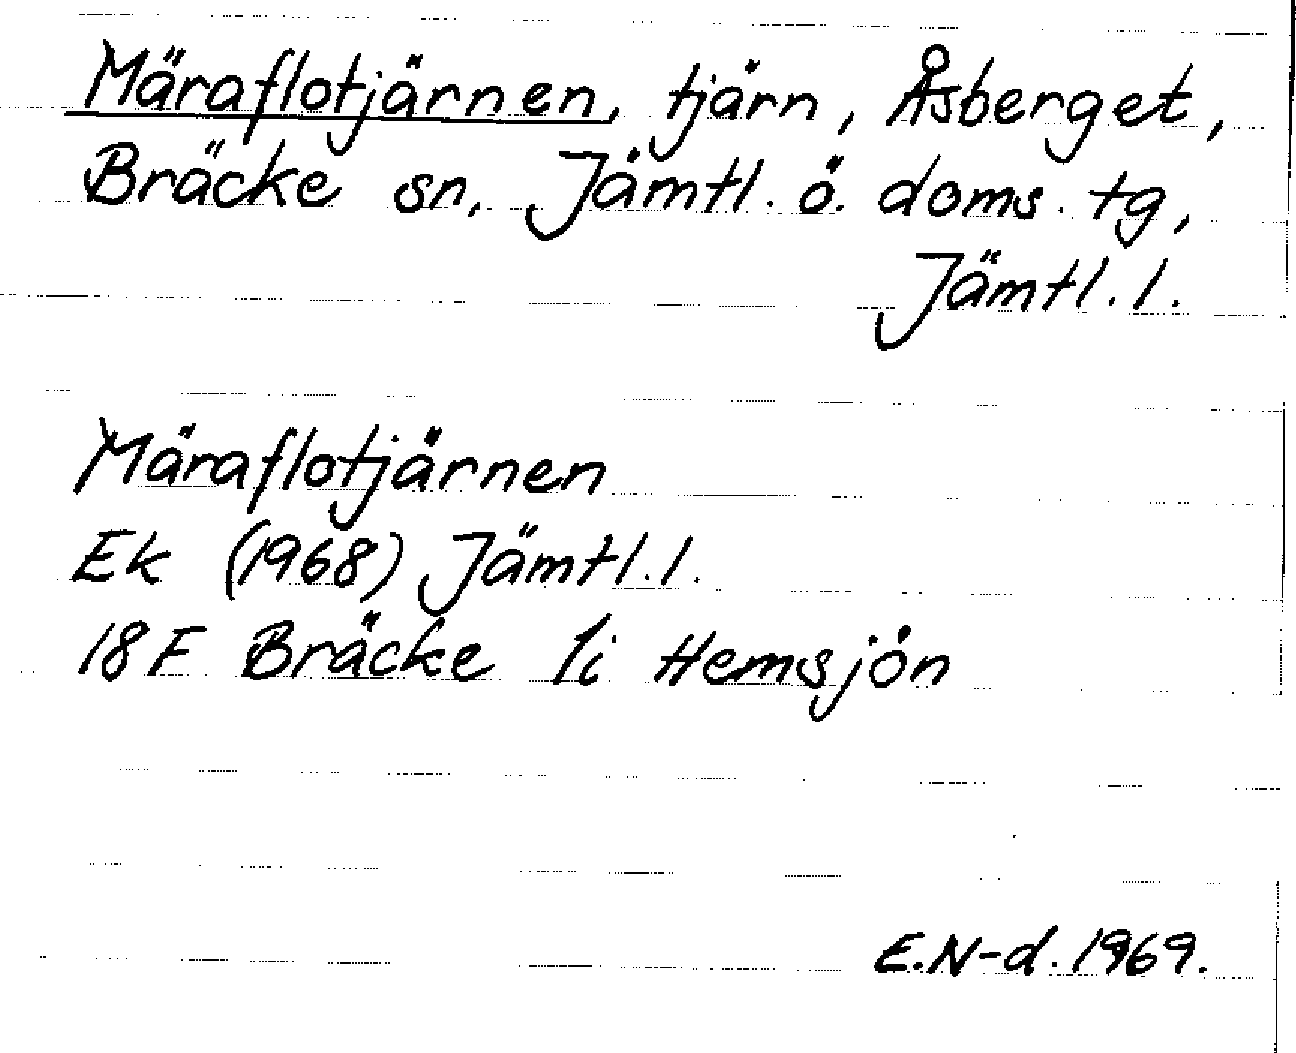 Märaflotjärnen, tjärn, Åsberget,
Bräcke sn, Jämtl. ö. doms. tg,
Jämtl. l.
Märaflotjärnen
Ek (1968) Jämtl. l.
18F Bräcke 1i Hemsjön
E.N-d. 1969.